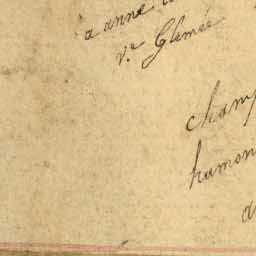 a anne
v.e Glemée
champ
humon
a